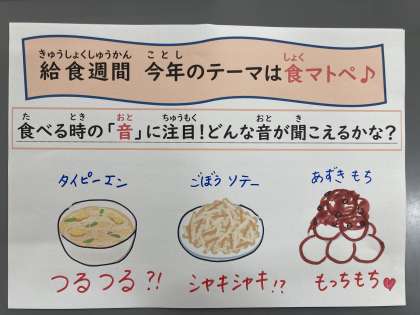 きゅうしょくしゅうかん ことし しょく
給食週間 今年のテーマは食マトペ♪
た とき おと ちゅうもく おと き
食べる時の「音」に注目!どんな音が聞こえるかな?
タイピーエン ごぼう ソテー あずき もち
つるつる?! シャキシャキ!? もっちもち♥